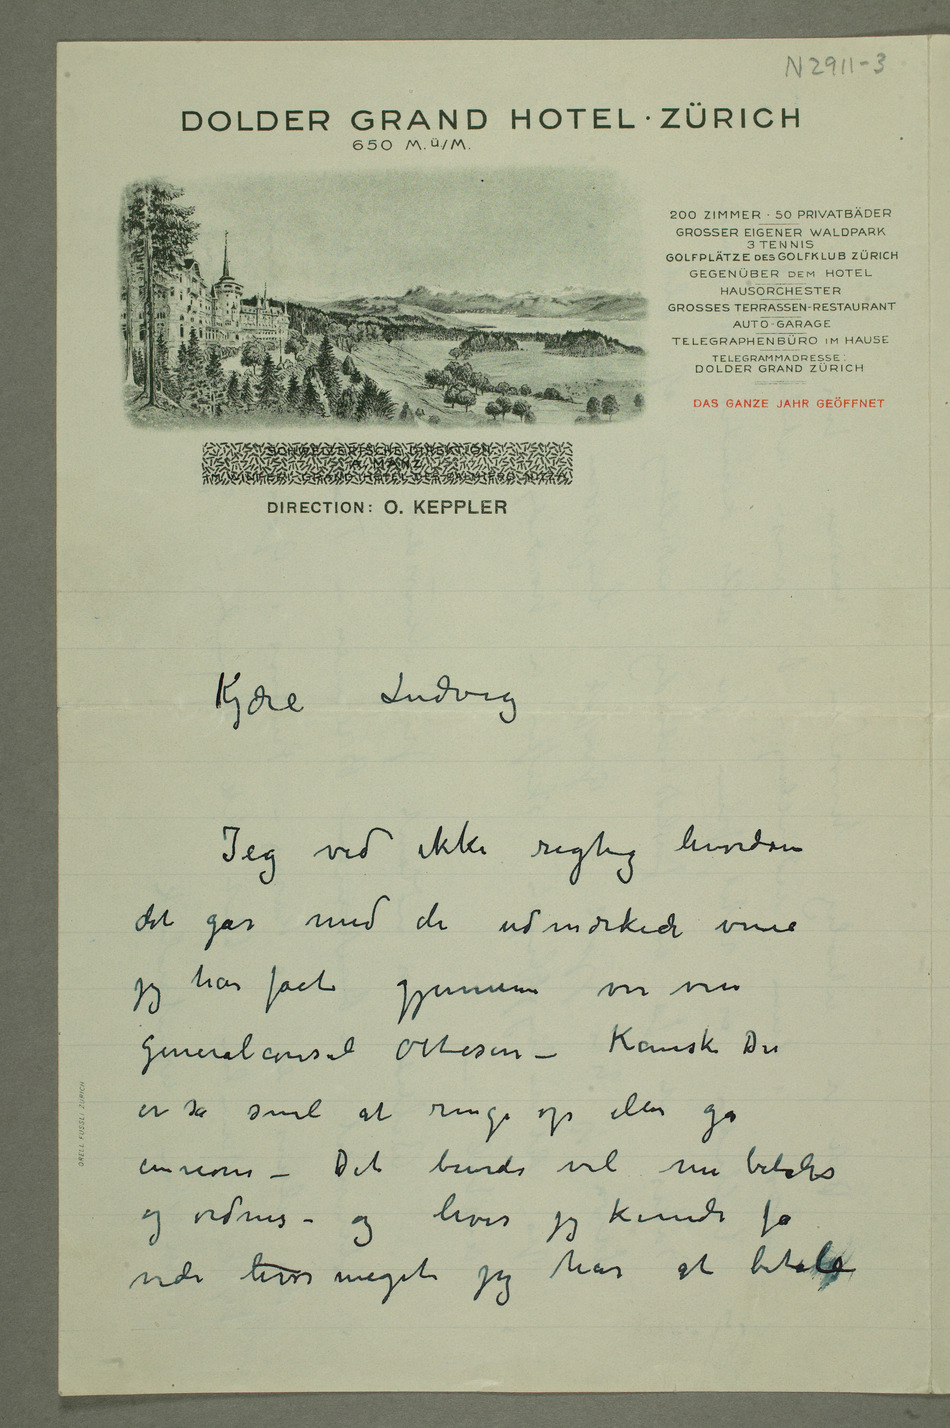 N 2911-3
DOLDER GRAND HOTEL · ZÜRICH
650 M.ü/M.
200 ZIMMER · 50 PRIVATBÄDER
GROSSER EIGENER WALDPARK
3 TENNIS
GOLFPLÄTZE DES GOLFKLUB ZÜRICH
GEGENÜBER DEM HOTEL
HAUSORCHESTER
GROSSES TERRASSEN-RESTAURANT
AUTO-GARAGE
TELEGRAPHENBÜRO IM HAUSE
TELEGRAMMADRESSE:
DOLDER GRAND ZÜRICH
DAS GANZE JAHR GEÖFFNET
SCHWEIZERISCHE DIREKTION
A. MANZ
DIRECTION: O. KEPPLER
Kjære Ludvig
Jeg ved ikke regtig hvordan
det går med de udmærkede vine
jeg har fået gjennem vor ven
generalconsul Ottesen – Kanske Du
er så snil at ringe op eller gå
innom – Det burde vel nu betales
og ordnes – og hvis jeg kunde få
vide hvor meget jeg har at betale
ORELL FÜSSLI ZÜRICH